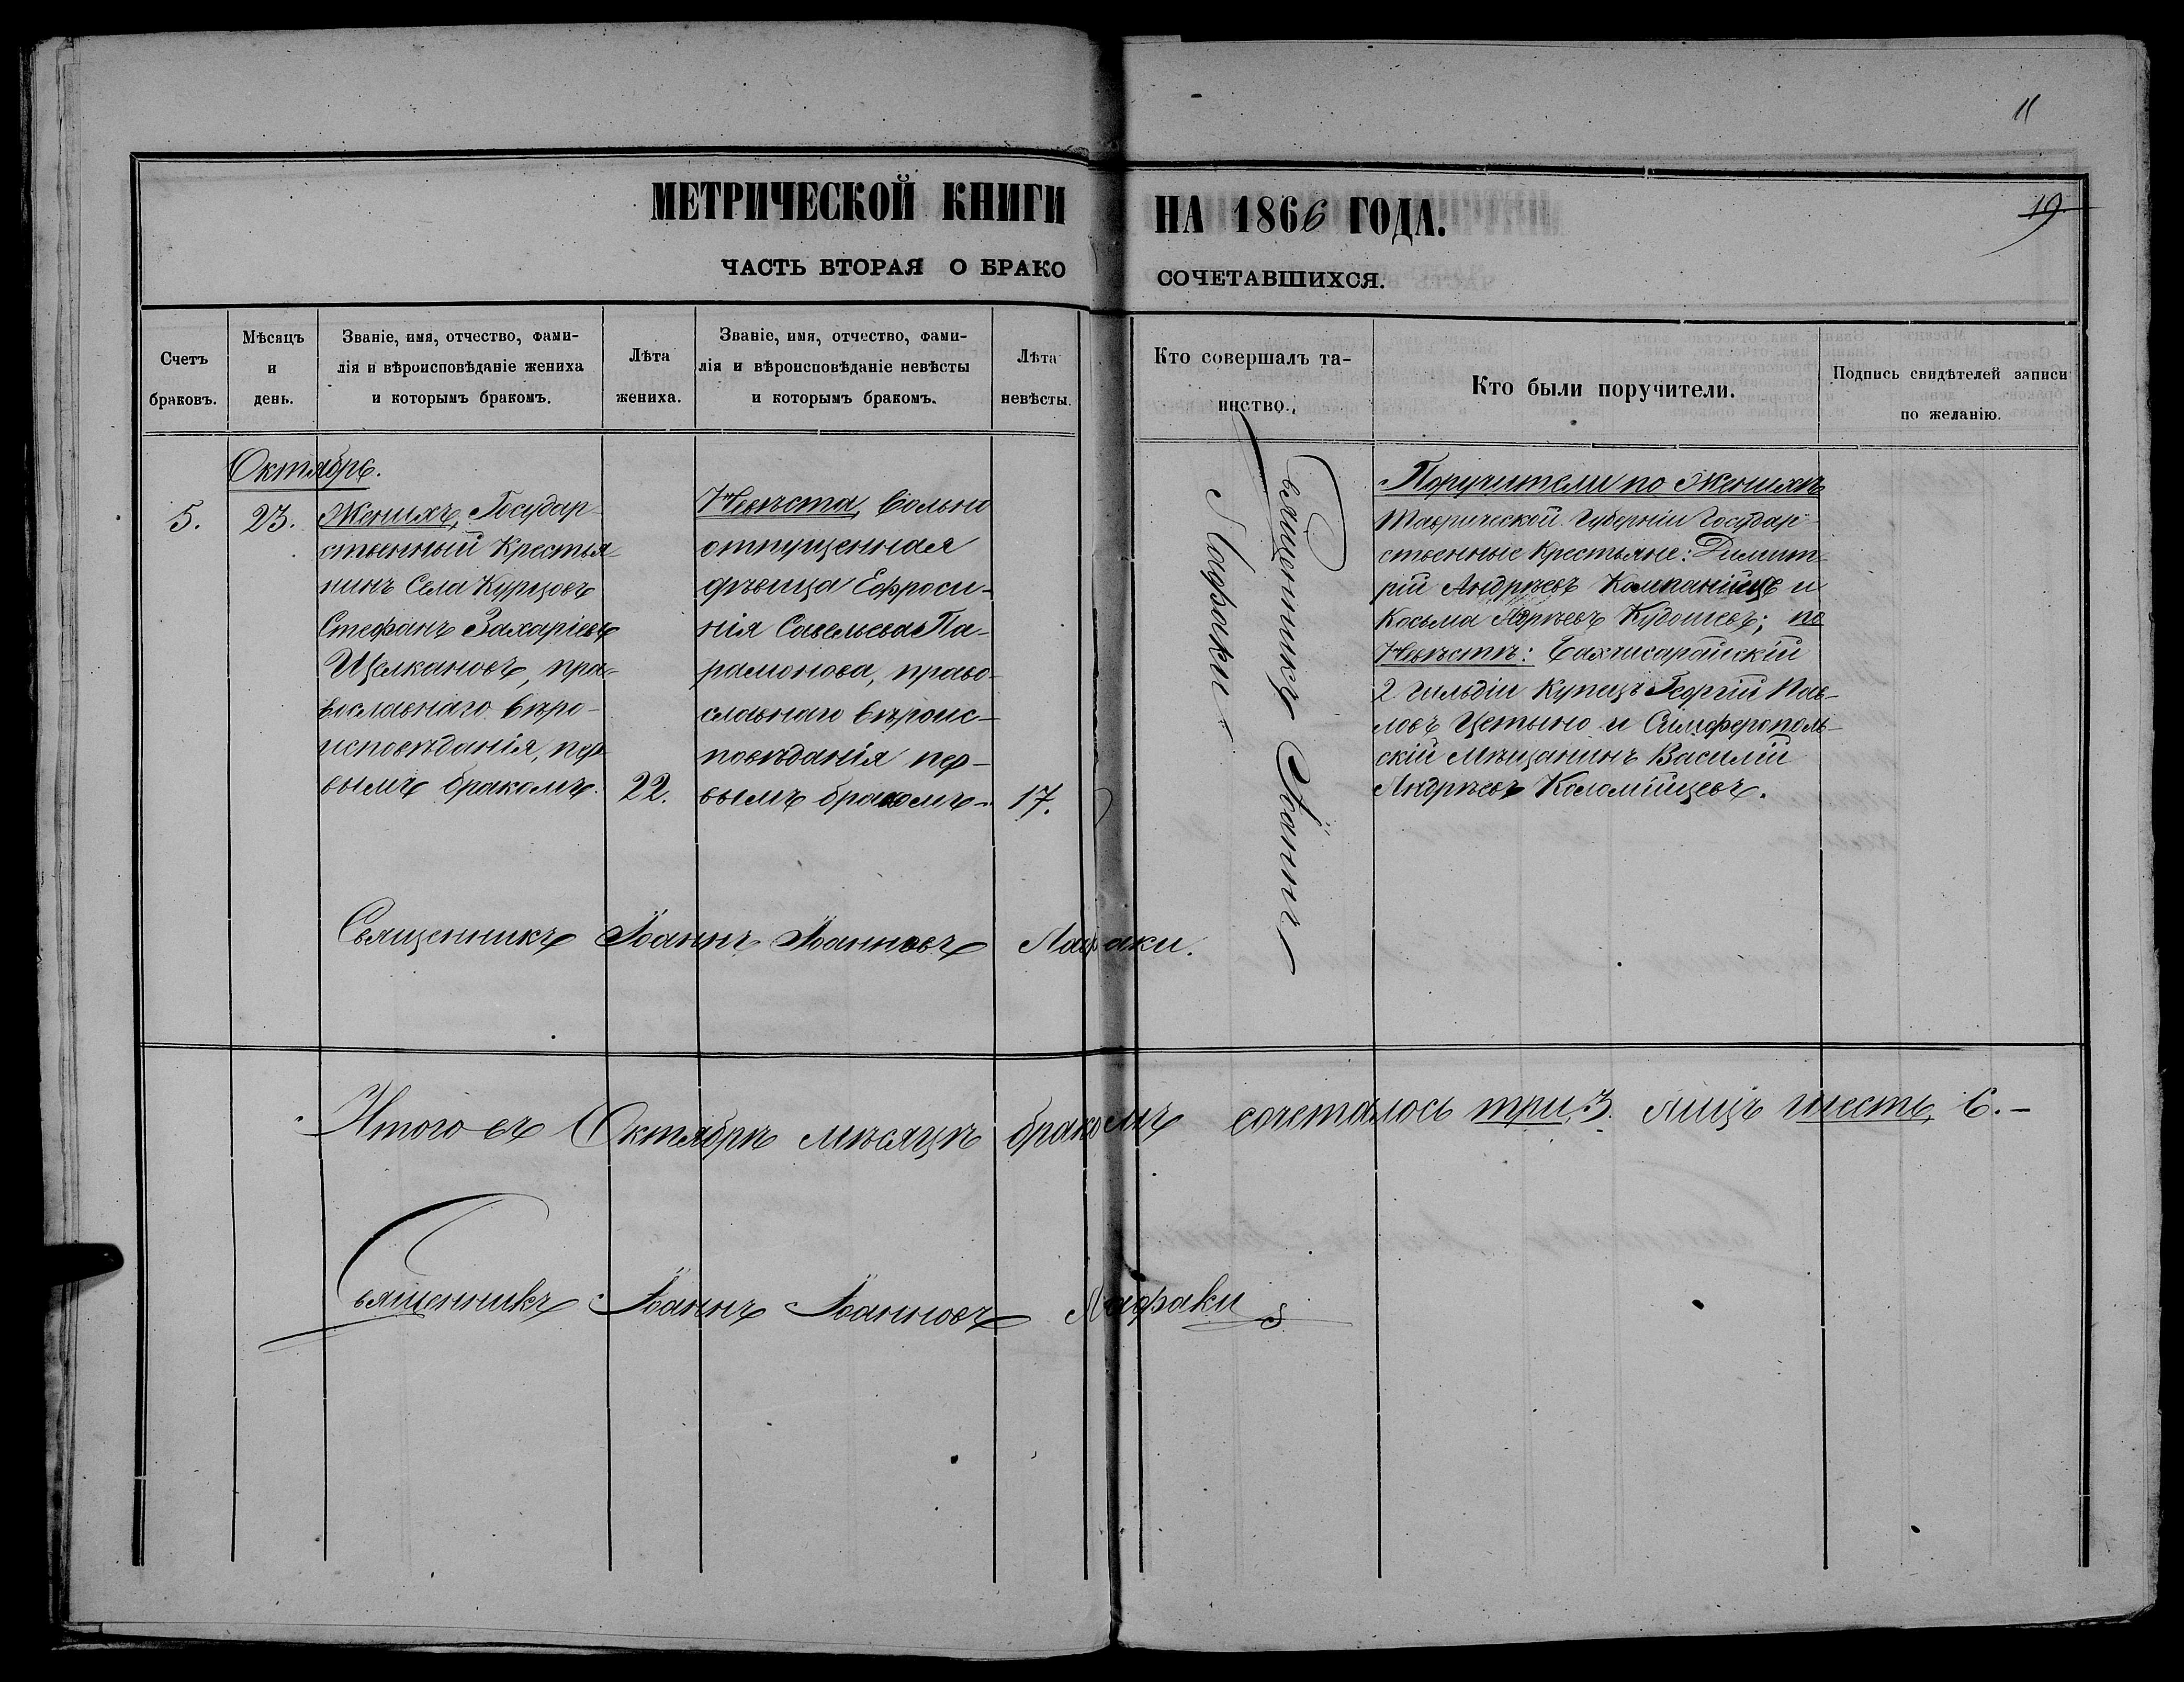 11
19
МЕТРИЧЕСКОЙ КНИГИ НА 1866 ГОДА.
ЧАСТЬ ВТОРАЯ О БРАКОСОЧЕТАВШИХСЯ.
Счетъ
браковъ.
Мѣсяцъ
и
день.
Званіе, имя, отчество, фами-
лія и вѣроисповѣданіе жениха
и которымъ бракомъ.
Лѣта
жениха.
Званіе, имя, отчество, фами-
лія и вѣроисповѣданіе невѣсты
и которымъ бракомъ.
Лѣта
невѣсты.
Кто совершалъ та-
инство.
Кто были поручители.
Подпись свидѣтелей записи
по желанію.
Октябрь.
5.
23.
Женихъ, Государ-
ственный Крестья-
нинъ Села Курцовъ
Стефанъ Захаріевъ
Щелкановъ, пра-
вославнаго вѣро-
исповѣданія, пер-
вымъ бракомъ.
22.
Невѣста, Вольно
отпущенная
дѣвица Ефроси-
нія Савельева Па-
рамонова, право-
славнаго вѣроис-
повѣданія пер-
вымъ бракомъ.
17.
Священникъ Іоаннъ
Лафаки
Поручители по Женихѣ
Таврической Губерніи Государ-
ственные Крестьяне: Димит-
рій Андрѣевъ Компаніецъ и
Косьма Кудошевъ; по
Невѣстѣ: Бахчисарайскій
2 гильдіи Купецъ Георгій Пав-
ловъ Цетыно и Симферополь-
скій Мѣщанинъ Василій
Андрѣевъ Коломійцевъ.
Священникъ Іоаннъ Іоанновъ Лафаки.
Итого въ Октябрѣ мѣсяцѣ бракомъ сочеталось три, 3. лицъ шесть, 6.-
Священникъ Іоаннъ Іоанновъ Лафаки